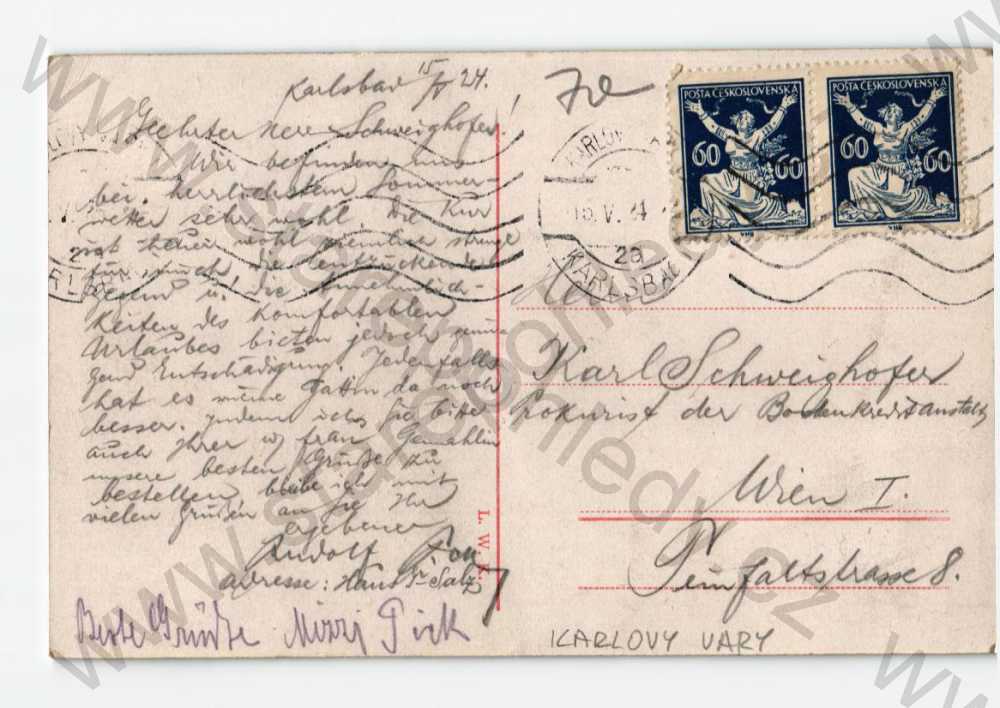 Karlsbad 15/V 24.
Geehrter Herr Schweighofer!
Wir befinden uns
bei herrlichstem Sommer-
wetter sehr wohl. Die Kur
ist heuer wohl ziemlich strenge
für mich, die entzückende
Gegend u. die Annehmlich-
keiten des komfortablen
Urlaubes bieten jedoch genü-
gend Entschädigung. Jedenfalls
hat es meine Gattin da noch
besser. Indem ich Sie bitte
auch Ihrer w. Frau Gemahlin
unsere besten Grüße zu
bestellen, bleibe ich mit
vielen Grüßen an Sie Ihr
ergebener
Rudolf
Adresse: Haus Salz
Beste Grüße Mizzi Pick
L. W. K.
POŠTA ČESKOSLOVENSKÁ
60 60
POŠTA ČESKOSLOVENSKÁ
60 60
KARLOVY
15.V.24
2a
KARLSBAD
Karl Schweighofer
Prokurist der Bodenkreditanstalt
Wien I.
Teinfaltstrasse 8.
KARLOVY VARY
www.staropohledy.cz